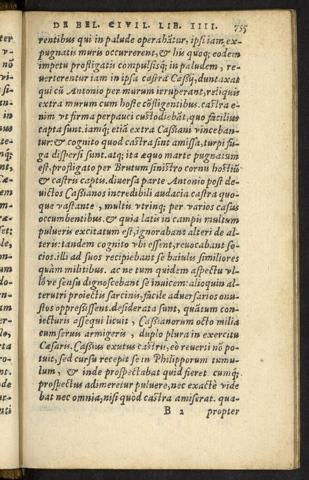 DE BEL. CIVIL. LIB. IIII. 755
rentibus qui in palude operabātur, ipsi iam ex-
pugnatis muris occurrerent, & his quoq; eodem
impetu profligatis compulsisq; in paludem, re-
uerterentur iam in ipsa castra Cassij, duntaxat
qui cū Antonio per murum irruperant, reliquis
extra murum cum hoste cōfligentibus. castra e-
nim ut firma perpauci custodiebāt, quo facilius
capta sunt. iamq; etiā extra Cassiani vinceban-
tur: & cognito quod castra sint amissa, turpi fu-
ga dispersi sunt. atq; ita æquo marte pugnatum
est, profligato per Brutum sinistro cornu hostiū
& castris captis. diuersa parte Antonio post de-
uictos Cassianos incredibili audacia castra quo-
que vastante, multis vtrinq; per varios casus
occumbentibus. & quia latis in campis multum
pulueris excitatum est, ignorabant alteri de al-
teris: tandem cognito vbi essent, reuocabant so-
cios. illi ad suos recipiebant se baiulis similiores
quàm militibus. ac ne tum quidem aspectu vl-
lóve sensu dignoscebant se inuicem: alioquin al-
terutri proiectis sarcinis, facile aduersarios onu-
stos oppressissent. desiderati sunt, quātum con-
iecturis assequi licuit, Cassianorum octo milia
cum seruis armigeris, duplo plura in exercitu
Cæsaris. Cassius exutus castris, eò reuerti nō po-
tuit, sed cursu recepit se in Philipporum tumu-
lum, & inde prospectabat quid fieret. cumq;
prospectus adimeretur puluere, nec exactè vide
bat nec omnia, nisi quod castra amiserat. qua-
B 2 propter